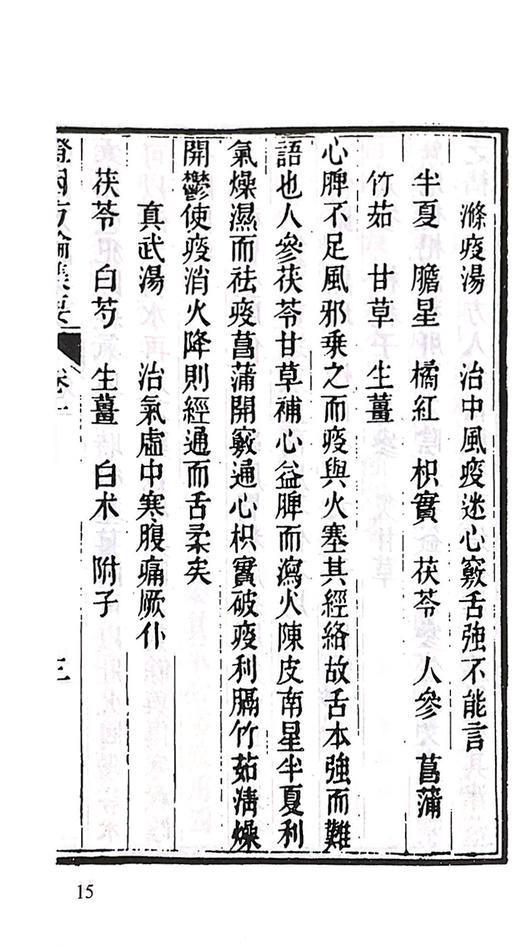 滌痰湯　治中風痰迷心竅舌強不能言
半夏　膽星　橘紅　枳實　茯苓　人參　菖蒲
竹茹　甘草　生薑
心脾不足風邪乘之而痰與火塞其經絡故舌本強而難
語也人參茯苓甘草補心益脾而瀉火陳皮南星半夏利
氣燥濕而祛痰菖蒲開竅通心枳實破痰利膈竹茹清燥
開鬱使痰消火降則經通而舌柔矣
真武湯　治氣虛中寒腹痛厥仆
茯苓　白芍　生薑　白术　附子
證因方論集要　卷一　三
15